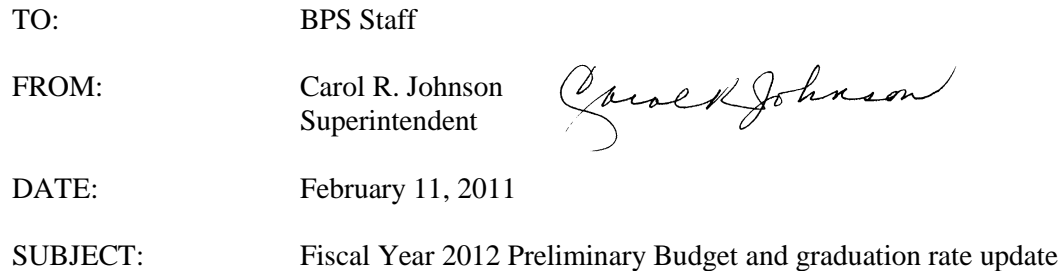 TO: BPS Staff
FROM: Carol R. Johnson Carol R Johnson
Superintendent
DATE: February 11, 2011
SUBJECT: Fiscal Year 2012 Preliminary Budget and graduation rate update